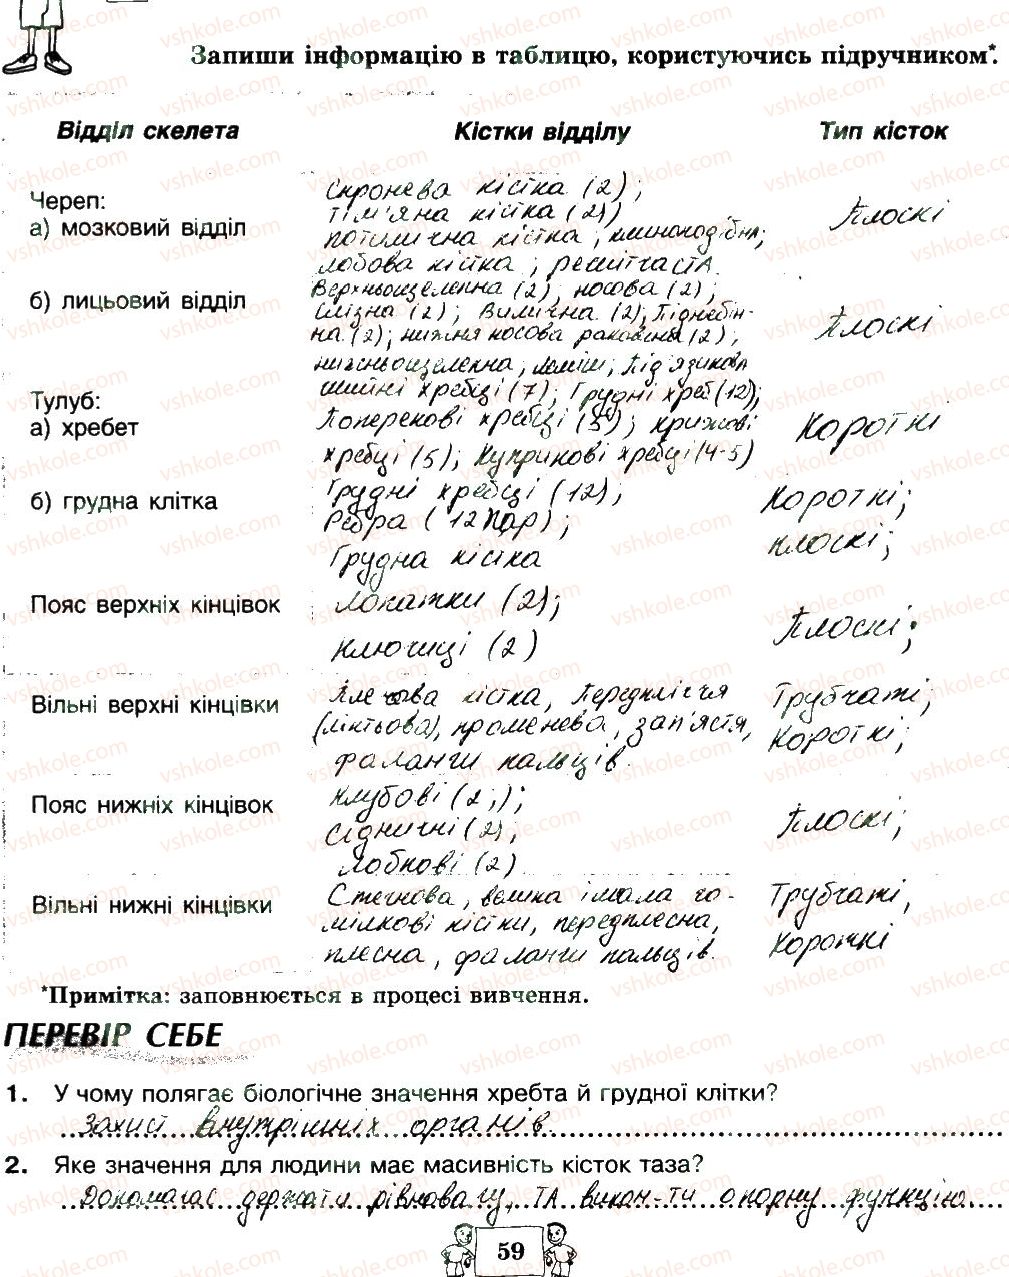 Запиши інформацію в таблицю, користуючись підручником*.
Відділ скелета Кістки відділу Тип кісток
Череп:
а) мозковий відділ
Скронева кістка (2);
Тім'яна кістка (2)
потилична кістка; клиноподібна;
лобова кістка; решітчаста.
Плоскі
б) лицьовий відділ
Верхньощелепна (2); носова (2);
Слізна (2); Вилична (2); Піднебін-
на (2); нижня носова раковина (2);
нижньощелепна; леміш; Під'язикова
Плоскі
Тулуб:
а) хребет
шийні хребці (7); Грудні хреб (12);
Поперекові хребці (5); крижові
хребці (5); Куприкові хребці (4-5)
Короткі
б) грудна клітка
Грудні хребці (12);
Ребра (12 пар);
Грудна кістка
Короткі;
плоскі;
Пояс верхніх кінцівок
Лопатки (2);
Ключиці (2)
Плоскі;
Вільні верхні кінцівки
Плечова кістка, Передпліччя
(ліктьова), променева, зап'ястя,
фаланги пальців.
Трубчаті;
Короткі;
Пояс нижніх кінцівок
Клубові (2);
Сідничні (2);
Лобкові (2)
Плоскі;
Вільні нижні кінцівки
Стегнова, велика і мала го-
мілкові кістки, передплесна,
плесна, фаланги пальців.
Трубчаті,
Короткі
*Примітка: заповнюється в процесі вивчення.
ПЕРЕВІР СЕБЕ
1. У чому полягає біологічне значення хребта й грудної клітки?
Захист внутрішніх органів.
2. Яке значення для людини має масивність кісток таза?
Допомагає держати рівновагу, та викон-ти опорну функцію.
59